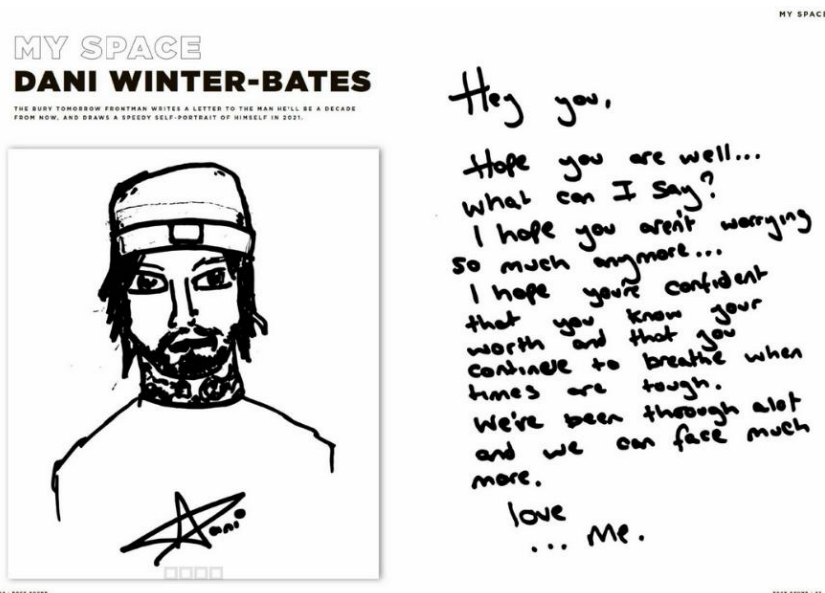 MY SPACE
MY SPACE
DANI WINTER-BATES
THE BURY TOMORROW FRONTMAN WRITES A LETTER TO THE MAN HE'LL BE A DECADE
FROM NOW, AND DRAWS A SPEEDY SELF-PORTRAIT OF HIMSELF IN 2021.
Dani
Hey you,
Hope you are well...
what can I say?
I hope you aren't worrying
so much anymore...
I hope you're confident
that you know your
worth and that you
continue to breathe when
times are tough.
We're been through alot
and we can face much
more.
love
... Me.